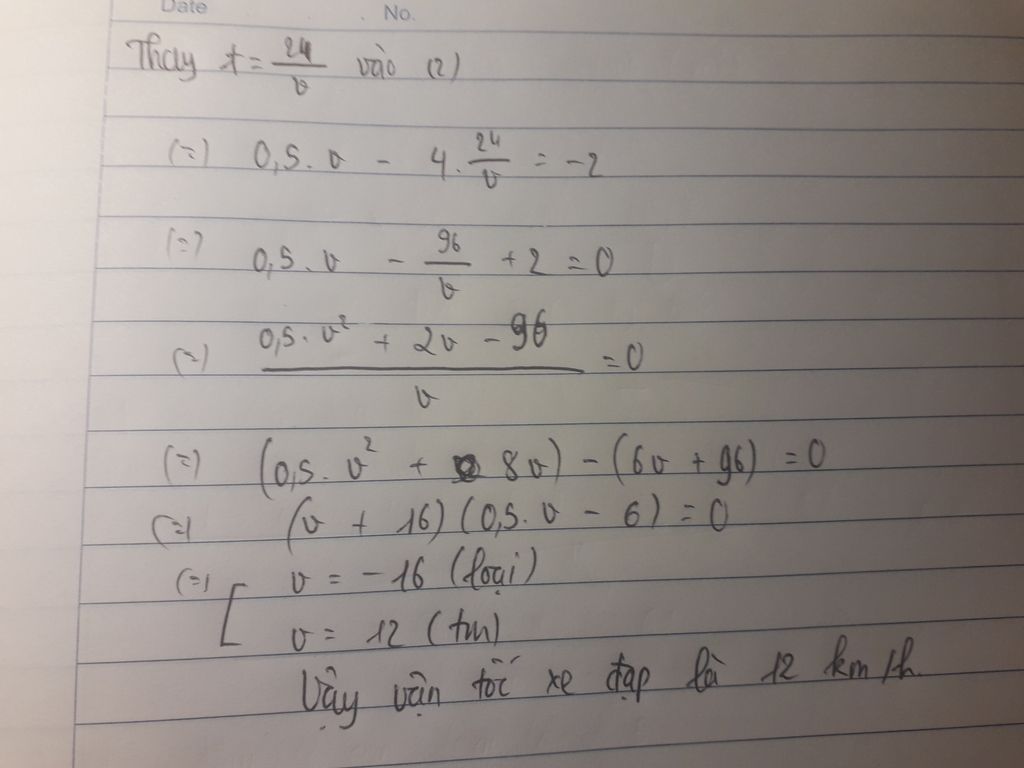 Date No.
Thay t = 24/v vào (2)
(=) 0,5. v - 4. 24/v = -2
(=) 0,5. v - 96/v + 2 = 0
(=) (0,5. v² + 2v - 96)/v = 0
(=) (0,5. v² + 8v) - (6v + 96) = 0
(=) (v + 16)(0,5. v - 6) = 0
(=) [ v = -16 (loại)
v = 12 (tm)
Vậy vận tốc xe đạp là 12 km/h.